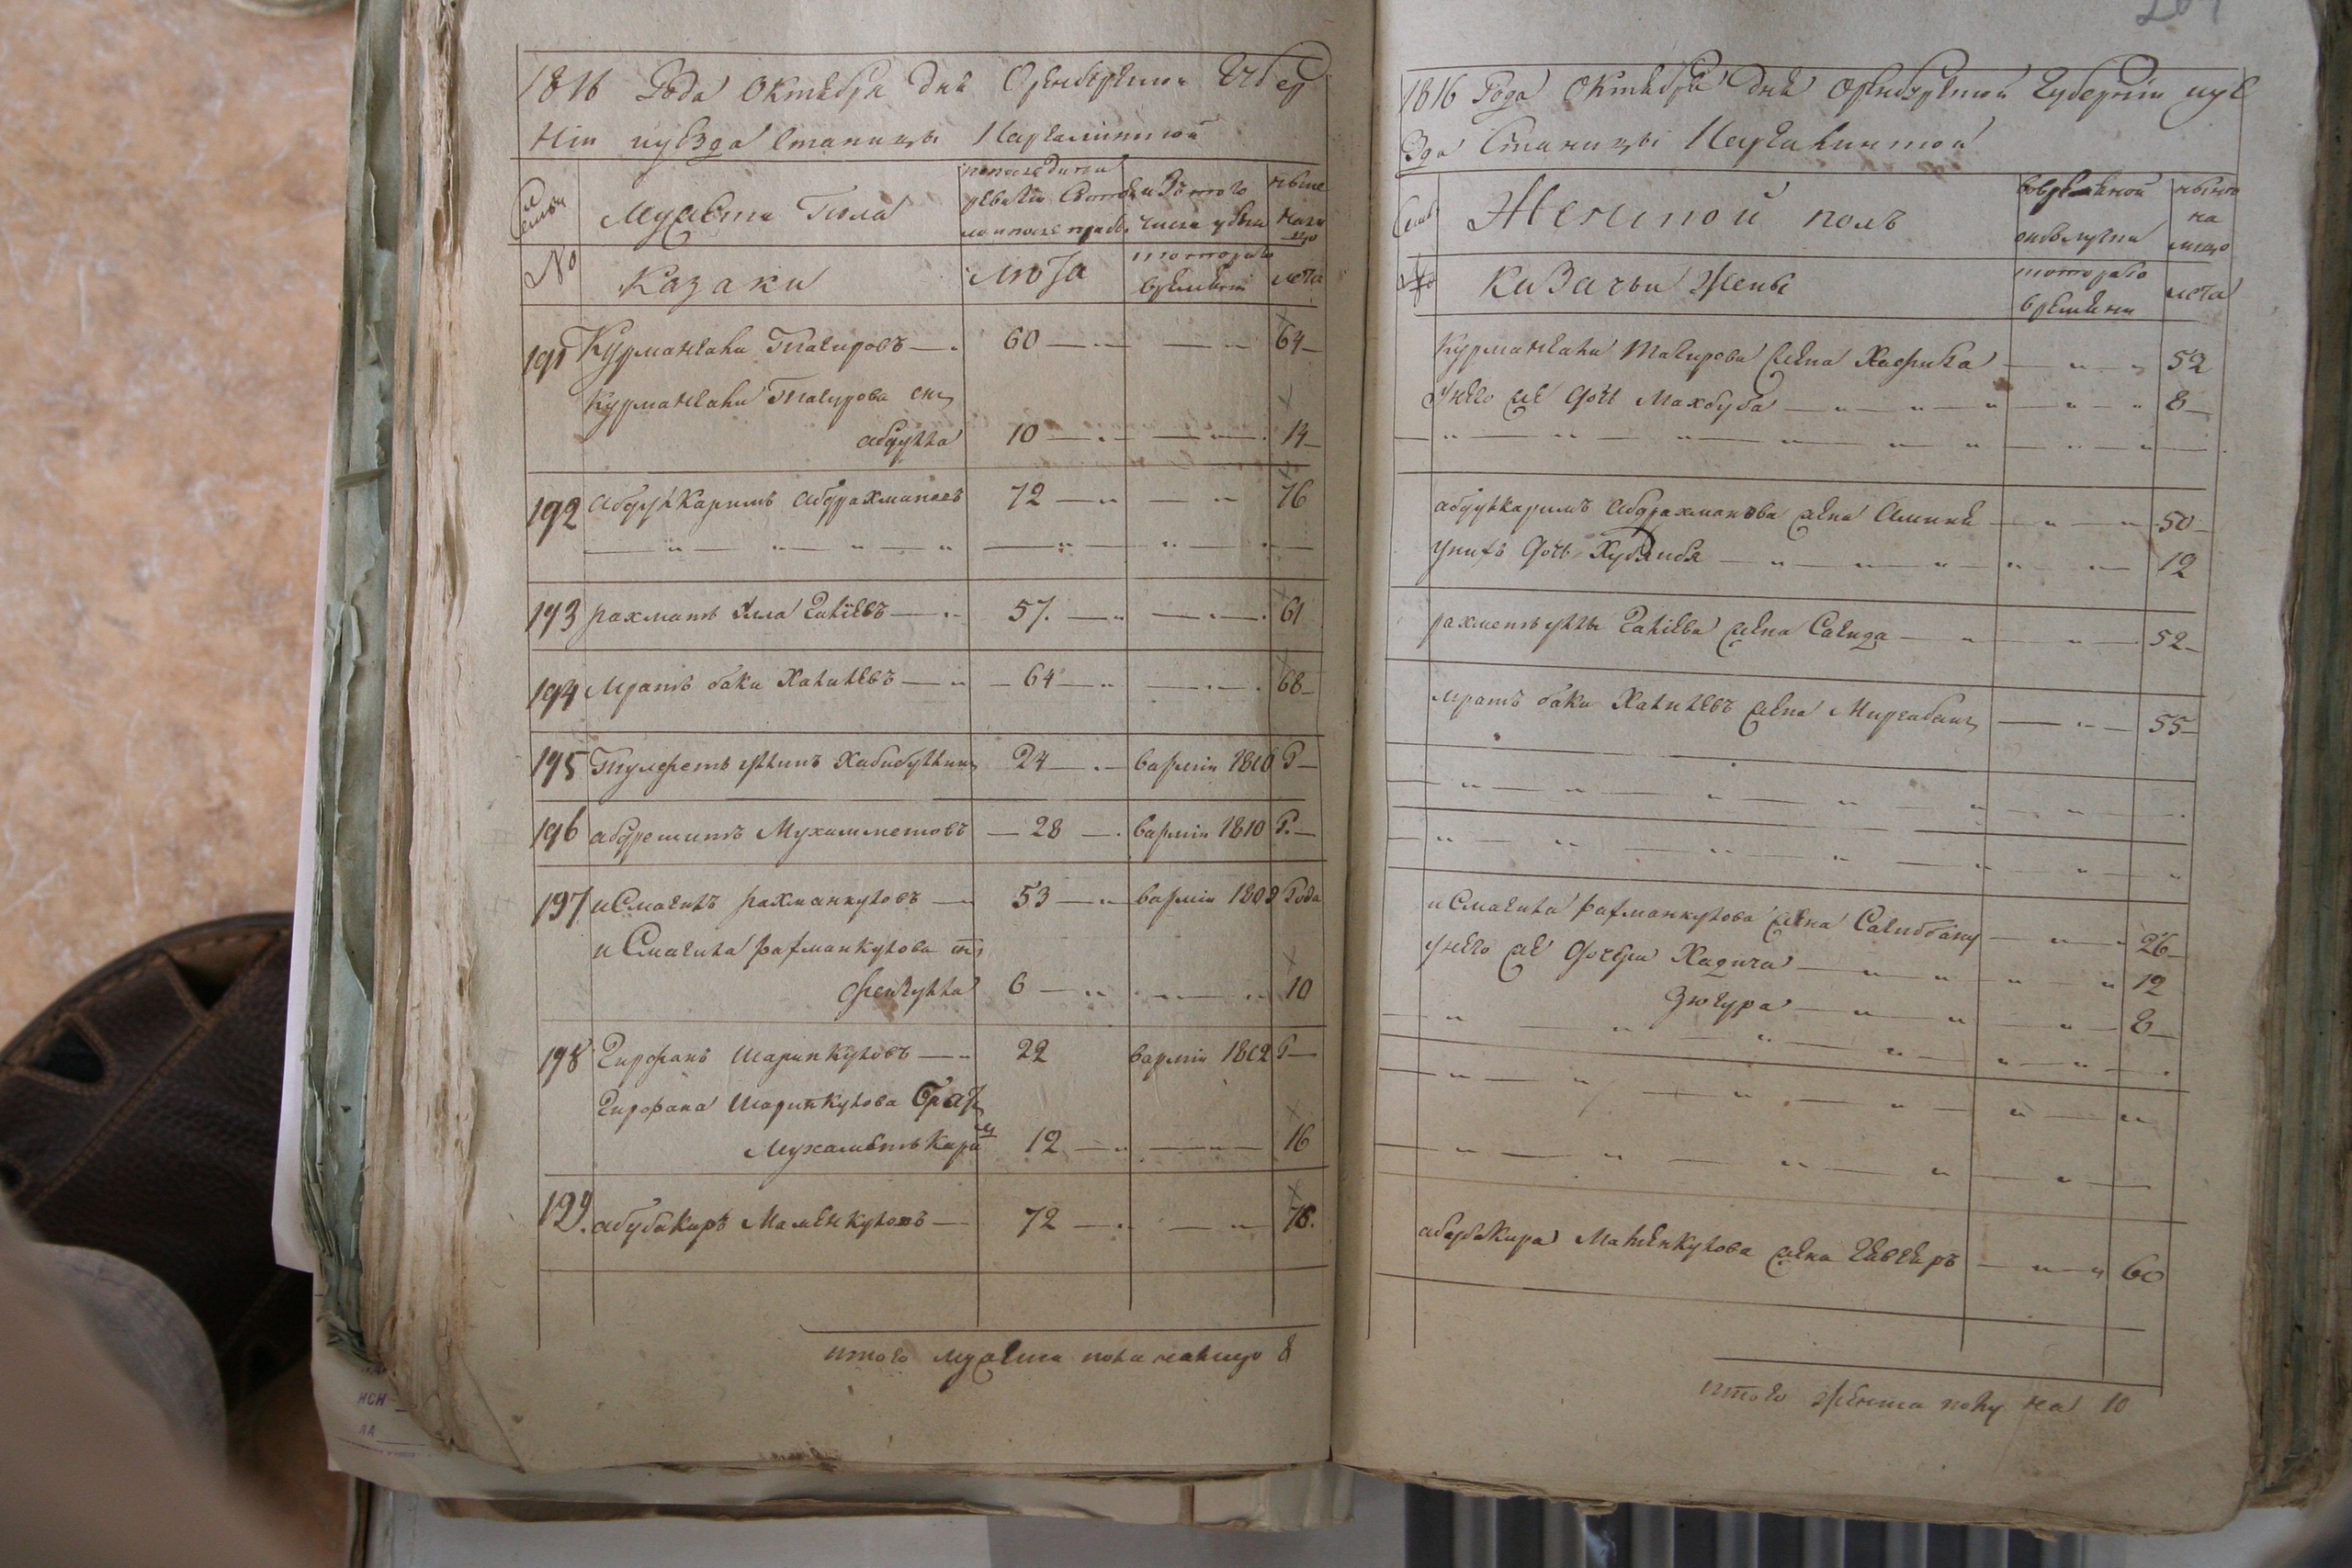 1816 Года Октября дня Оренбургской Губер
нiи и уезда Станицы Каргалинской
Семьи
Мужеска Пола
по последней
ревизии состо
из того
числа убыли
ныне
нали
цо
№
Казаки
лета
которого
времени
лета
191 Курмангали Тагировъ 60 64
Курмангали Тагирова сын
абдулла 10 14
192 абдулкаримъ абдрахмановъ 72 76
193 рахматъ улла Галiевъ 57. 61
194 Мратъ баки Халилевъ 64 68
195 хабибуллин 24 в армiи 1810 Г
196 абдрешитъ Мухамметовъ 28 в армiи 1810 Г.
197 исмагилъ рахманкуловъ 53 в армiи 1809 Года
исмагила рахманкулова сын
фейзулла 6 10
198 Гирфанъ Шарипкуловъ 22 в армiи 1812 Г
Гирфана Шарипкулова брат
Мухаметькарим 12 16
199. абубакиръ Маменкуловъ 72 76.
итого мужеска пола налицо 8
1816 Года Октября дня Оренбургской Губернiи и уе
зда Станицы Каргалинской
Семьи
Женской полъ
во временной
отлучки
ныне
на
лицо
№
Казачьи Жены
которого
времени
лета
Курмангали Тагирова жена Хафиза 52
у него же дочь Махбуба 8
абдулкаримъ абдрахманова жена Амина 50
у нихъ дочь Хубжиба 12
рахметъ уллы Галiева жена Сагида 52
мратъ баки Халилевъ жена 55
исмагила рахманкулова жена Сагиббану 26
у него же дочери Хадича 12
Зюгура 8
абубакира Маменкулова жена Гавгаръ 60
итого женска полу на 10